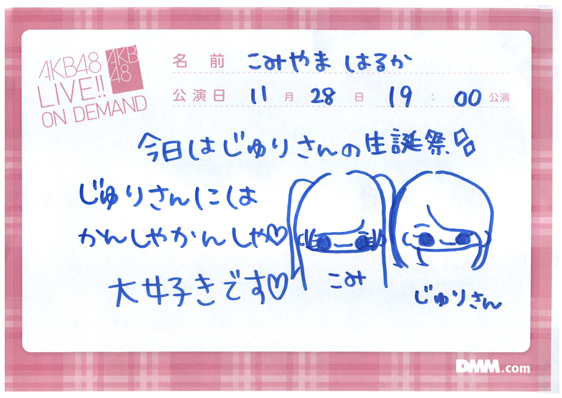 AKB48
LIVE!!
ON DEMAND
AKB
48
名前 こみやま はるか
公演日 11月 28日 19:00 公演
今日はじゅりさんの生誕祭
じゅりさんには
かんしゃかんしゃ♡
大好きです♡
こみ
じゅりさん
DMM.com